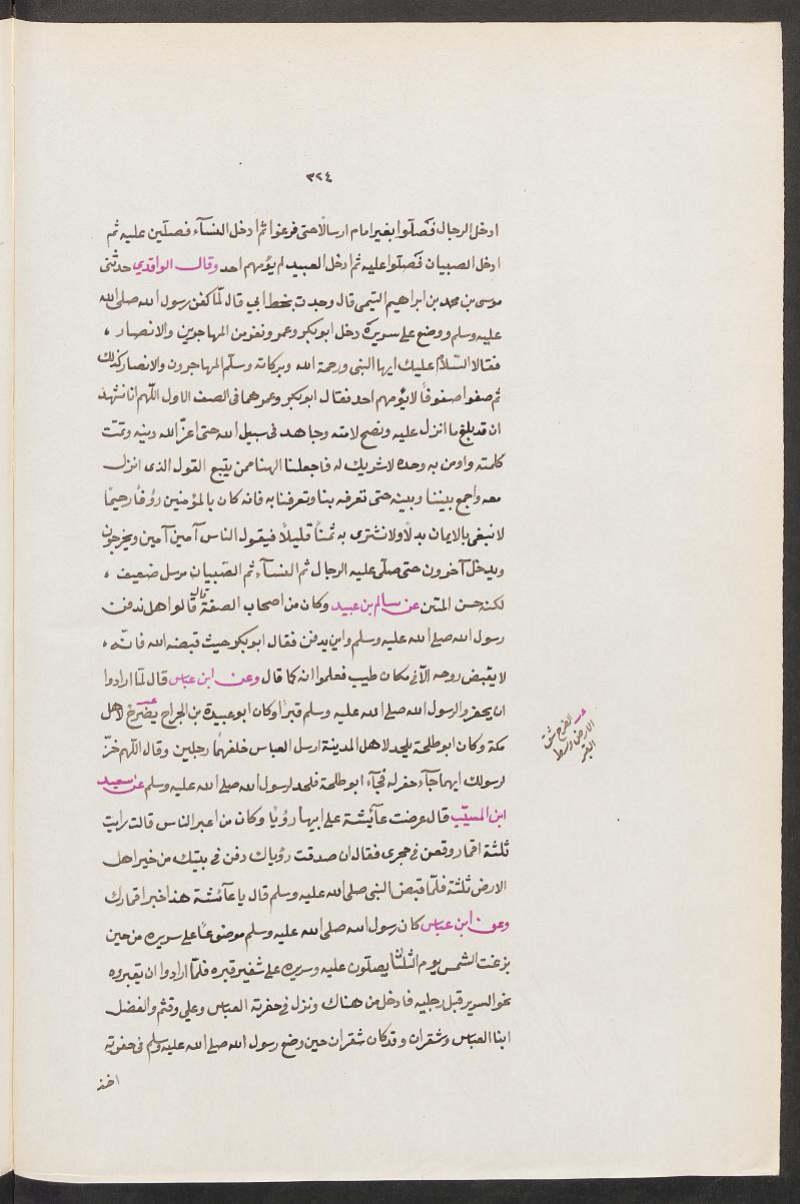 ٣٢٤
ادخل الرجال فصلّوا بغير امام ارسالًا حتى فرغوا ثم ادخل النسآء فصلّين عليه ثم
ادخل الصبيان فصلّوا عليه ثم ادخل العبيد لم يؤمهم احد وقال الواقدي حدثنى
موسى بن محمد بن ابراهيم التيمى قال وجدت بخط ابي قال لمّا كفن رسول الله صلى الله
عليه وسلم ووضع على سريره دخل ابوبكر وعمر ونفر من المهاجرين والانصار ،
فقالا السّلام عليك ايها النبى ورحمة الله وبركاته وسلّم المهاجرون والانصار كذلك
ثم صفوا صفوفًا لا يؤمهم احد فقال ابوبكر وعمر هما فى الصف الاول اللّهم انا نشهد
ان قد بلغ ما انزل عليه ونصح لامته وجاهد فى سبيل الله حتى اعزّ الله دينه وتمت
كلمته واومن به وحده لا شريك له فاجعلنا الهنا ممن يتبع القول الذى انزل
معه واجمع بيننا وبينه حتى تعرفه بنا وتعرفنا به فانه كان بالمؤمنين رؤفًا رحيمًا
لا نبغى بالايمان بدلًا ولا نشترى به ثمنًا قليلًا فيقول الناس آمين آمين ويخرجون
ويدخل آخرون حتى صلّى عليه الرجال ثم النسآء ثم الصّبيان مرسل ضعيف ،
لكنه حسن المتن عن سالم بن عبيد وكان من اصحاب الصفة قال قالوا هل ندفن
رسول الله صلى الله عليه وسلم واين يدفن فقال ابوبكر حيث قبضه الله فانّه ،
لا يقبض روحه الّا فى مكان طيب فعلموا انه كما قال وعن ابن عباس قال لمّا ارادوا
ان يحفروا لرسول الله صلى الله عليه وسلم قبرًا وكان ابو عبيدة بن الجراح يضرح لاهل
مكة وكان ابو طلحة يلحد لاهل المدينة ارسل العباس خلفهما رجلين وقال اللّهم خرّ
لرسولك ايهما جآء حفر له فجآء ابو طلحة فلحد لرسول الله صلى الله عليه وسلم عن سعيد
ابن المسيّب قال عرضت عآئشة على ابيها رؤيا وكان من اعبر الناس قالت رايت
ثلثة اقمار وقعن فى حجرى فقال ان صدقت رؤياك دفن فى بيتك من خير اهل
الارض ثلثة فلمّا قبض النبى صلى الله عليه وسلم قال يا عآئشة هذا خير اقمارك
وعن ابن عباس كان رسول الله صلى الله عليه وسلم موضوعًا على سريره من حين
بزغت الشمس يوم الثلثا يصلّون عليه وسريره على شفير قبره فلمّا ارادوا ان يقبروه
نحوا السرير قبل رجليه فادخل من هناك ونزل فى حفرته العباس وعلي وقثم والفضل
ابنا العباس وشقران وقد كان شقران حين وضع رسول الله صلى الله عليه وسلم فى حفرته
اخذ
الضرح شق
الارض وسط
القبر